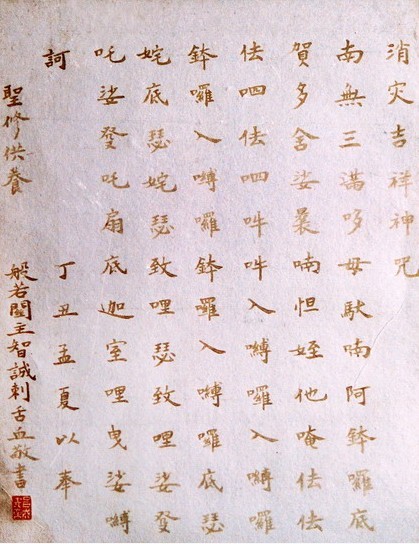 消灾吉祥神咒
南無三滿哆母馱喃阿鉢囉底
賀多舍娑曩喃怛姪他唵佉佉
佉呬佉呬吽吽入嚩囉入嚩囉
鉢囉入嚩囉鉢囉入嚩囉底瑟
姹底瑟姹瑟致哩瑟致哩娑發
吒娑發吒扇底迦室哩曳娑嚩
訶 丁丑孟夏以奉
聖修供養 般若閣主智誠刺舌血敬書